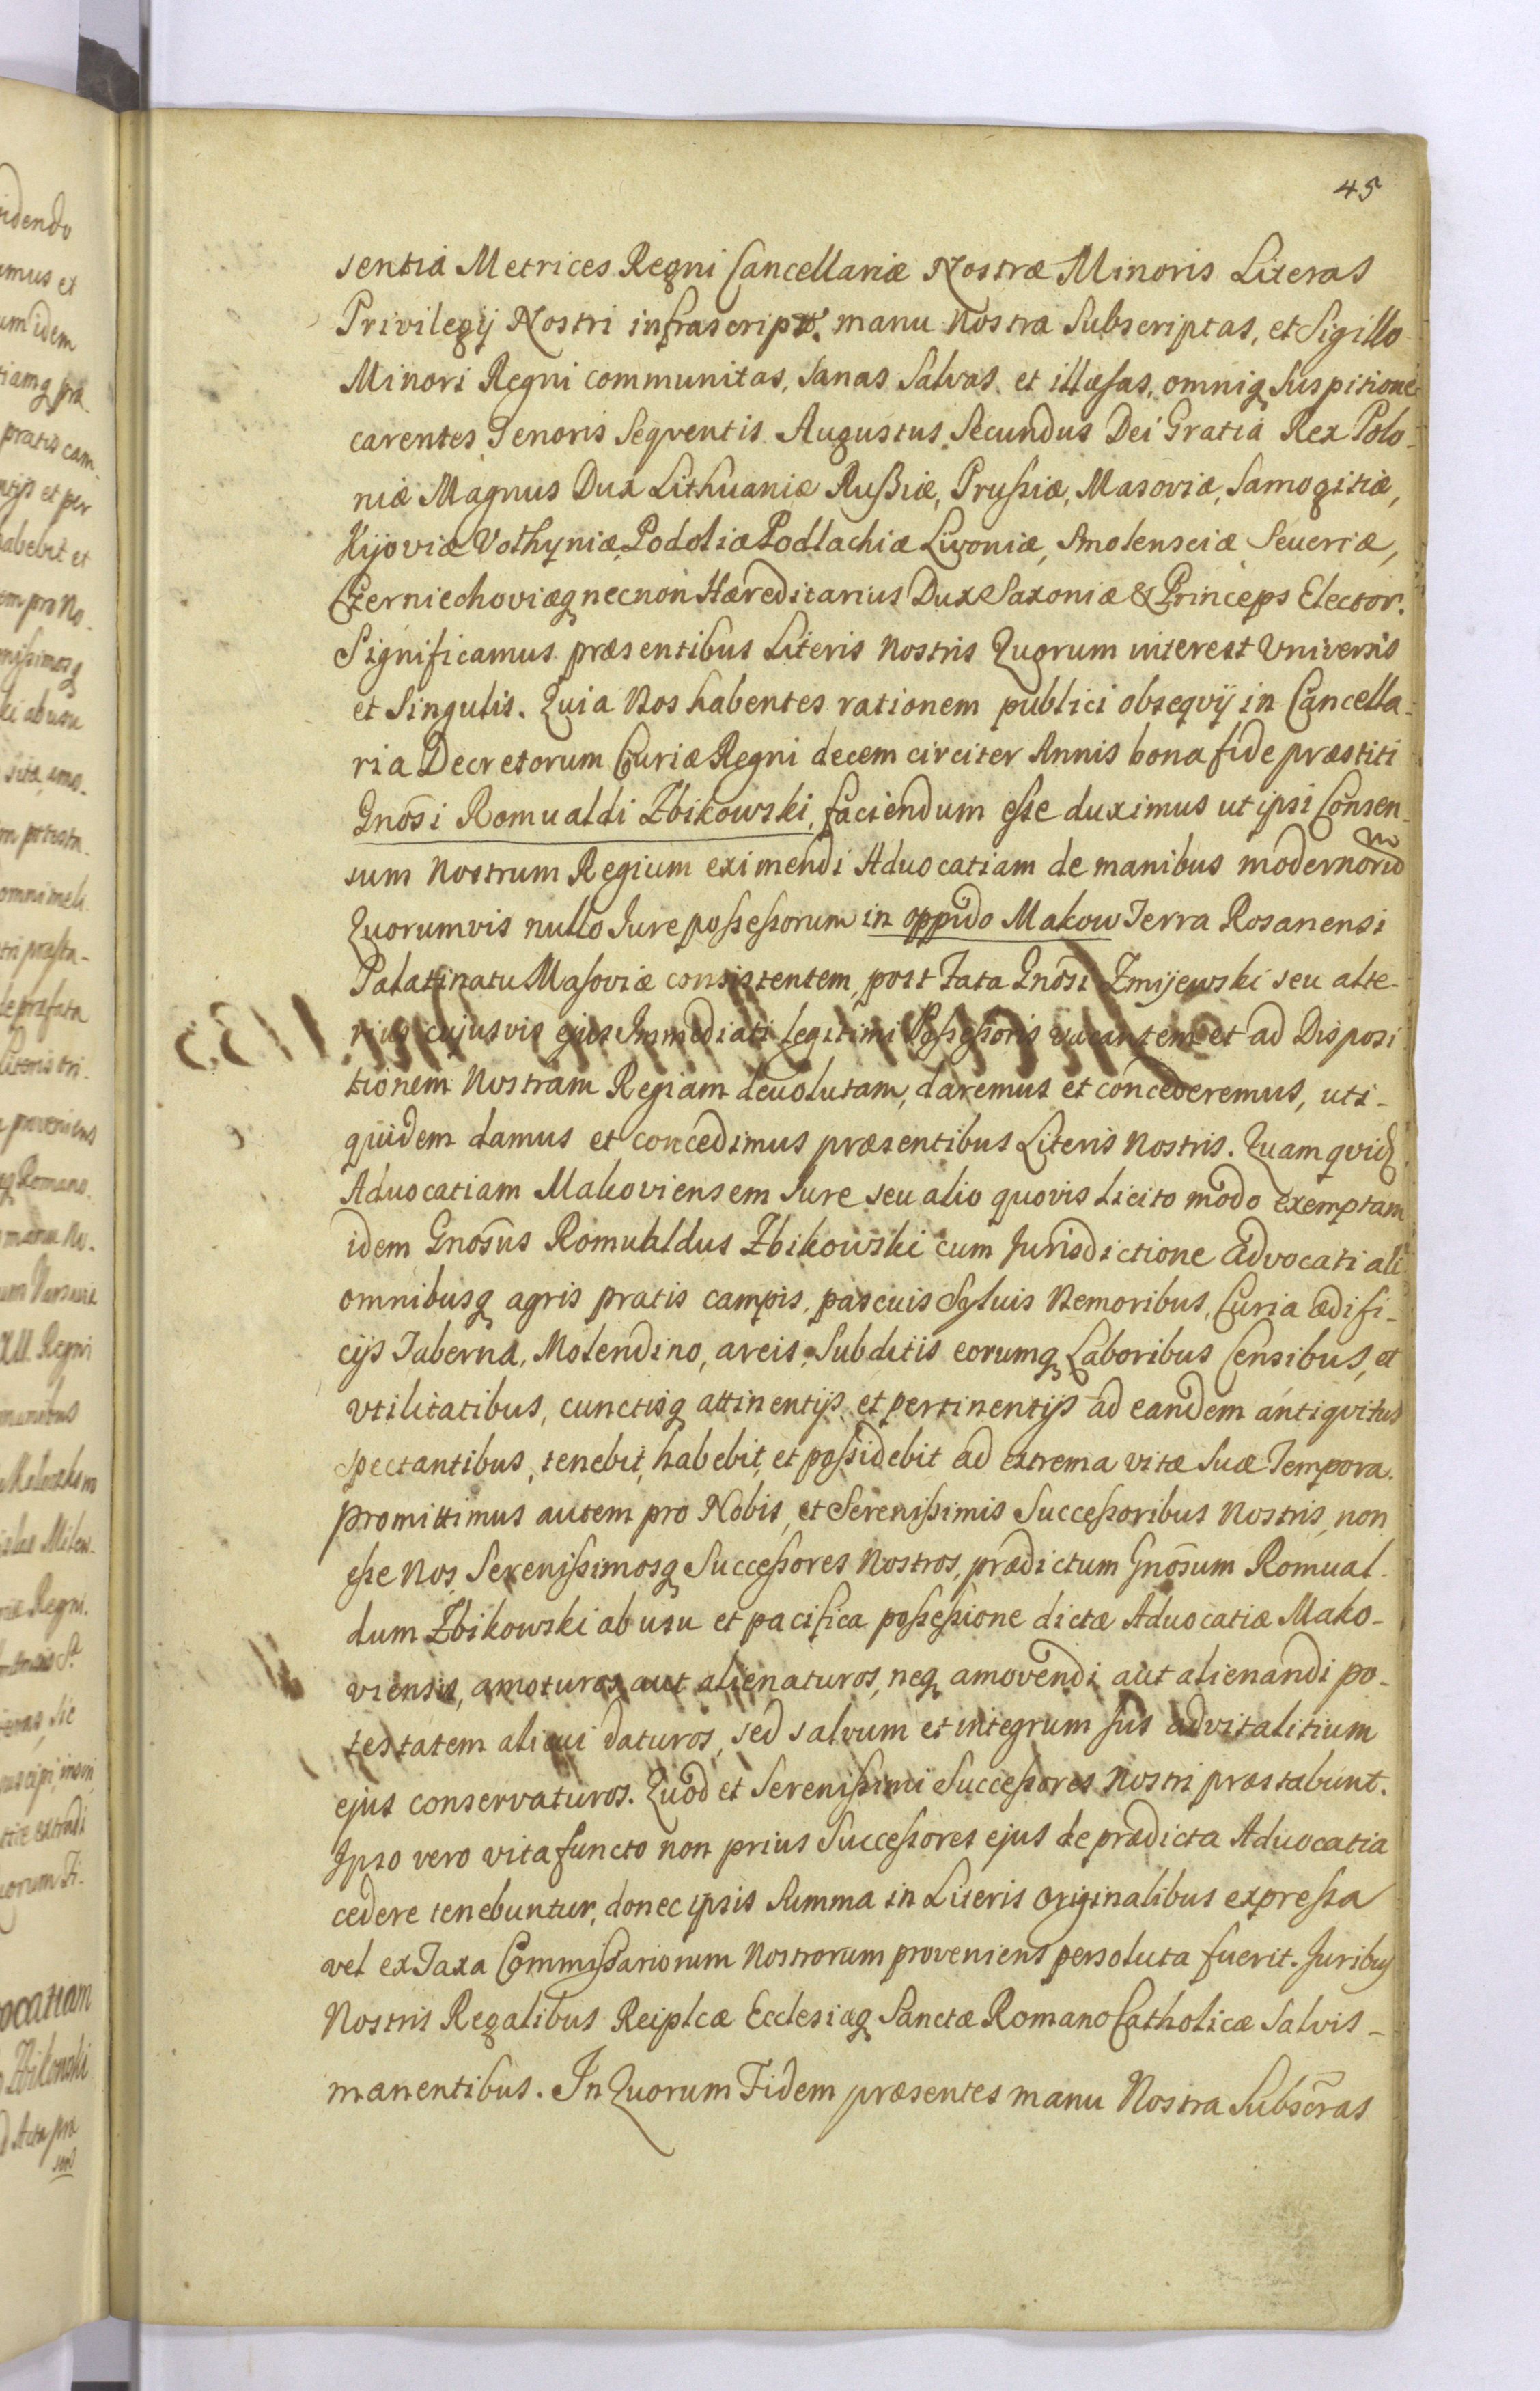 45
sentia Metrices Regni Cancellariæ Nostræ Minoris Literas
Privilegij Nostri infrascript. manu Nostra Subscriptas, et Sigillo
Minori Regni communitas, Sanas Salvas et illæsas, omniq Suspitione
carentes Tenoris Seqventis. Augustus Secundus Dei Gratia Rex Polo-
niæ Magnus Dux Lithuaniæ Rußiæ, Prussiæ, Masoviæ, Samogitiæ,
Kijoviæ Volhyniæ Podoliæ Podlachiæ Livoniæ, Smolensciæ Seueriæ,
Czerniechoviæq necnon Hæreditarius Dux Saxoniæ & Princeps Elector.
Significamus præsentibus Literis Nostris Quorum interest Universis
et Singulis. Quia Nos habentes rationem publici obseqvij in Cancella-
ria Decretorum Curiæ Regni decem circiter Annis bona fide præstiti
Gnosi Romualdi Zbikowski, faciendum esse duximus ut ipsi Consen-
sum Nostrum Regium eximendi Aduocatiam de manibus modernorum
Quorumvis nullo Jure possessorum in oppido Makow Terra Rosanensi
Palatinatu Masoviæ consistentem, post Fata Gnosi Zmijewski seu alte-
rius cujusvis ejus Immediati legitimi Possessoris vacantem et ad Disposi
tionem Nostram Regiam deuolutam, daremus et concederemus, uti-
quidem damus et concedimus præsentibus Literis Nostris. Quam qvid
Aduocatiam Makoviensem Jure seu alio quovis licito modo exemptam
idem Gnosus Romualdus Zbikowski cum Jurisdictione advocatiali
omnibusq agris pratis campis, pascuis Syluis Nemoribus, Curia ædifi-
cijs Taberna, Molendino, areis, Subditis eorumq Laboribus Censibus, et
vtilitatibus, cunctisq attinentijs et pertinentijs ad eandem antiqvitus
Spectantibus, tenebit, habebit, et possidebit ad extrema vitæ Suæ Tempora.
promittimus autem pro Nobis, et Serenissimis Successoribus Nostris, non
esse Nos Serenissimosq Successores Nostros, prædictum Gnosum Romual-
dum Zbikowski ab usu et pacifica possessione dictæ Aduocatiæ Mako-
viensis, amoturos aut alienaturos, neq amovendi aut alienandi po-
testatem alicui daturos, sed salvum et integrum Jus advitalitium
ejus conservaturos. Quod et Serenissimi Successores Nostri præstabunt.
Ipso vero vita functo non prius Successores ejus de prædicta Aduocatia
cedere tenebuntur, donec ipsis Summa in Literis originalibus expressa
vel ex Taxa Commissariorum Nostrorum proveniens persoluta fuerit. Juribus
Nostris Regalibus Reiplcæ Ecclesiæq Sanctæ Romano Catholicæ Salvis-
manentibus. In Quorum Fidem præsentes manu Nostra Subscras